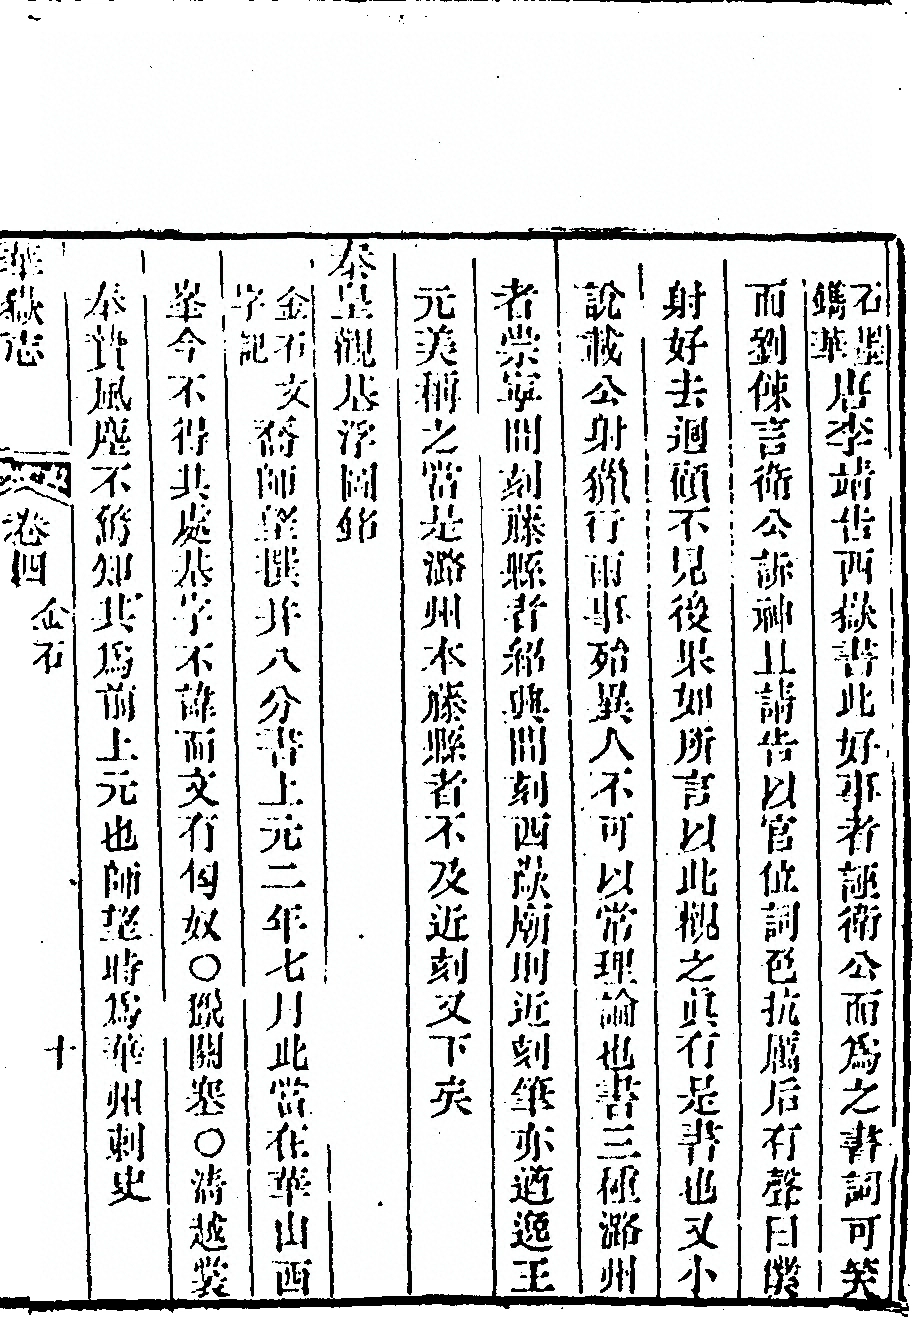 石墨鐫華唐李靖告西嶽書此好事者誣衛公而為之書詞可笑
而劉餗言衛公訴神且請告以官位詞色抗厲后有聲曰僕
射好去迴顧不見後果如所言以此觀之真有是書也又小
說載公射獵行雨事殆異人不可以常理論也書三種潞州
者崇寧間刻藤縣者紹興間刻西嶽廟則近刻筆亦遒逸王
元美稱之當是潞州本藤縣者不及近刻又下矣
秦皇觀基浮圖銘
金石文字記喬師望撰并八分書上元二年七月此當在華山西
峯今不得其處基字不諱而文有匈奴〇獗關塞〇濤越裳
奉贄風塵不
知其為前上元也師望時為華州刺史
華嶽志
卷四
金石
十